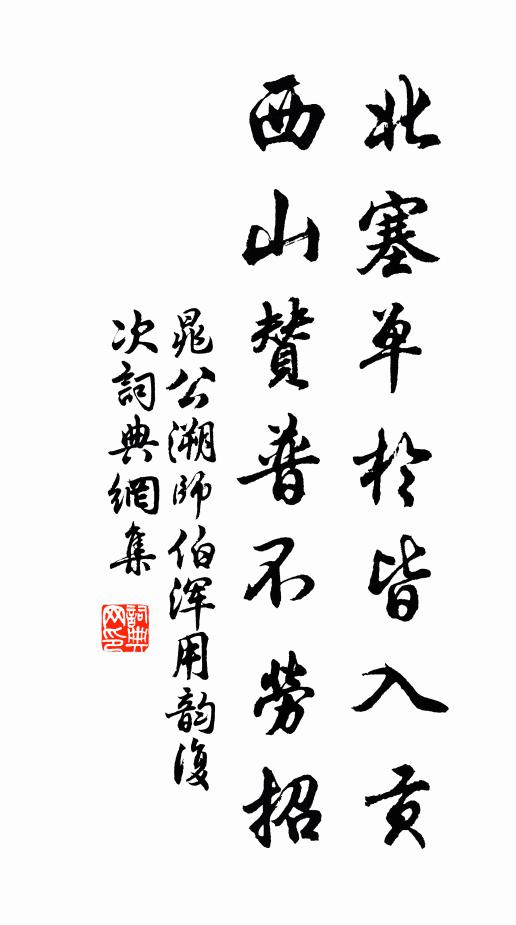 北塞单於皆入贡
西山賛普不勞招
晁公溯師伯浑用韵復
次詞典網集
詞典
网印